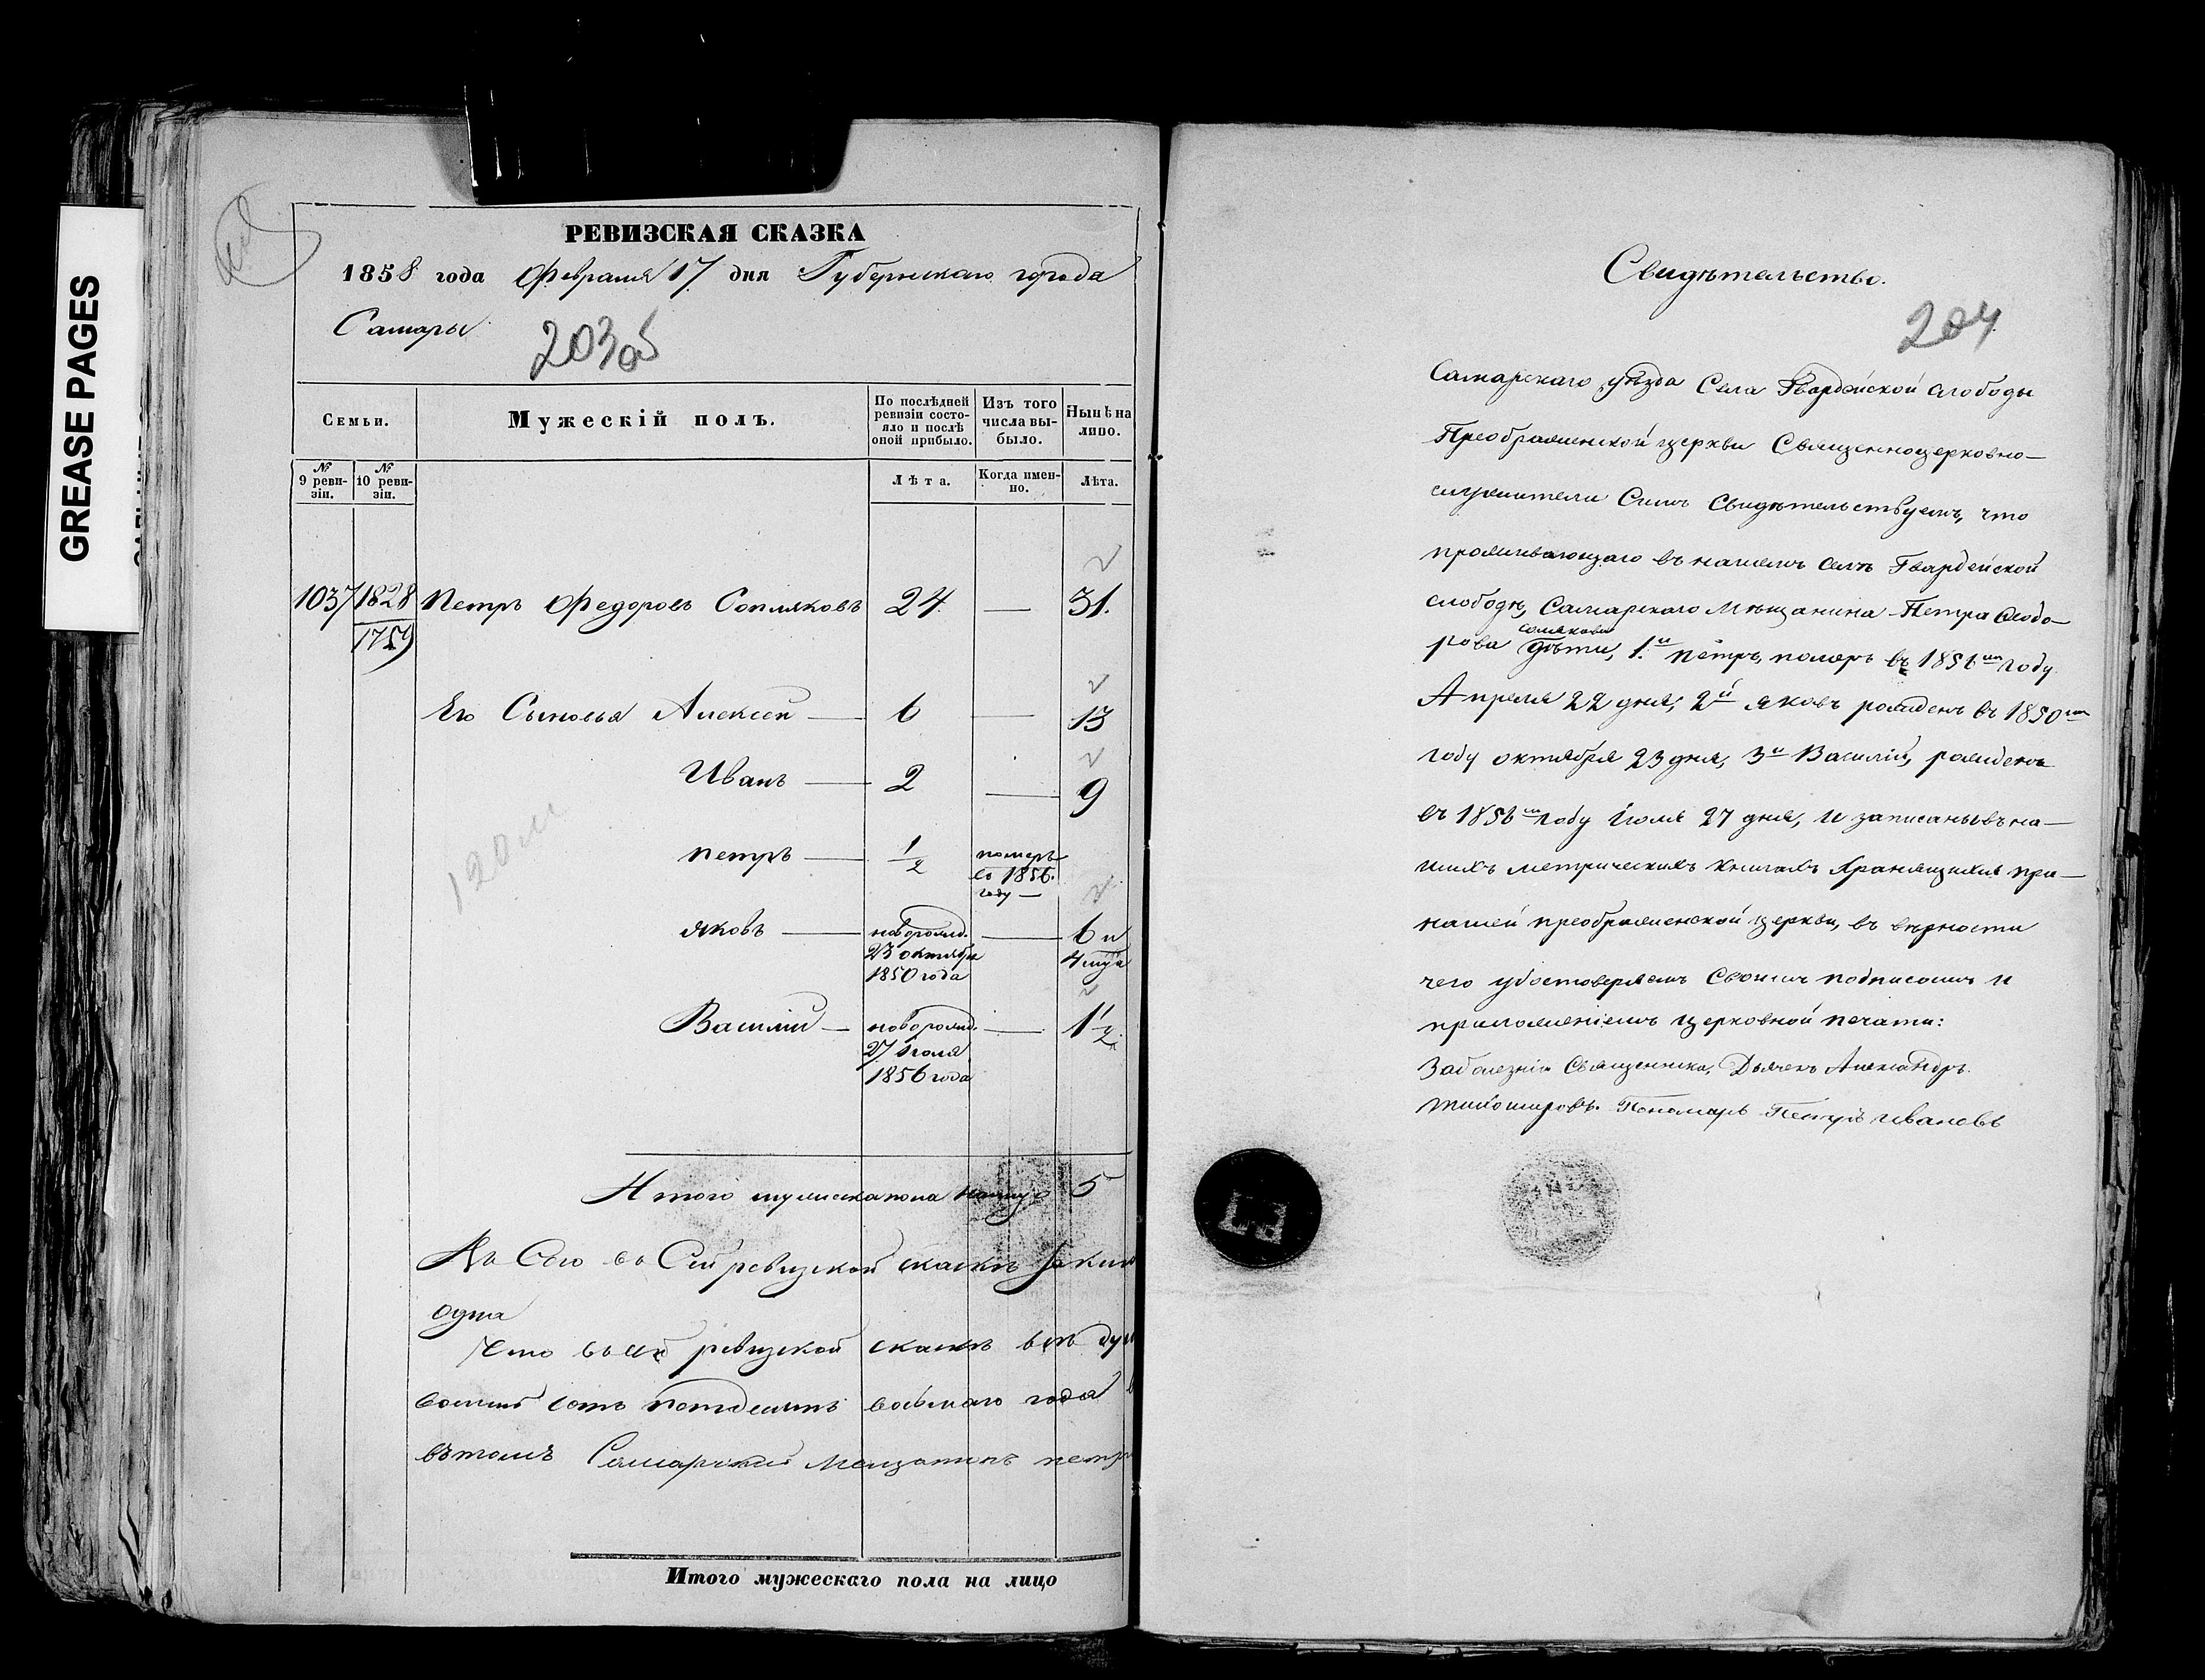 GREASE PAGES
РЕВИЗСКАЯ СКАЗКА
1858 года Февраля 17 дня Губернскаго города
Самары
203об
Семьи.
Мужескій полъ.
По послѣдней ревизіи состояло и послѣ оной прибыло.
Изъ того числа выбыло.
Нынѣ на лицо.
№ 9 ревизіи.
№ 10 ревизіи.
Лѣта.
Когда именно.
Лѣта.
1037 1828 Петръ Федоровъ Сопляковъ 24 — 31.
1759
Его Сыновья Алексей — 6 — 13
Иванъ — 2 — 9
Петръ — 1/2 померъ въ 1856. году —
Яковъ — новорожд. 23 октября 1850 года — 6 и 4 мца
Василій — новорожд. 27 Іюля 1856 года — 1 1/2
120
Итого мужеска пола налицо 5
А всего въ Сей ревизской сказкѣ
одна
Что въ сей ревизской сказкѣ всѣ
восьмаго года
въ томъ Самарский Мещанинъ петр
Итого мужескаго пола на лицо
Свидѣтельство.
204
Самарскаго уѣзда Села Гвардейской слободы
Преображенской церкви Священноцерковно—
служители Симъ Свидѣтельствуемъ, что
проживающаго въ нашемъ селѣ Гвардейской
слободѣ, Самарскаго Мѣщанина Петра Федо—
соплякова
рова дѣти, 1.й Петръ, померъ въ 1856м году
Апреля 22 дня, 2й Яковъ рожденъ въ 1850м
году октября 23 дня, 3й Василій, рожденъ
въ 1856м году Іюля 27 дня, и записаны въ на—
шихъ метрическихъ книгахъ хранящихся при—
нашей преображенской церкви, въ вѣрности
чего удостоверяемъ Своимъ подписомъ и
приложеніемъ церковной печати:
За болезнію Священника, Дьячекъ Александръ
Пономарь Петръ Ивановъ